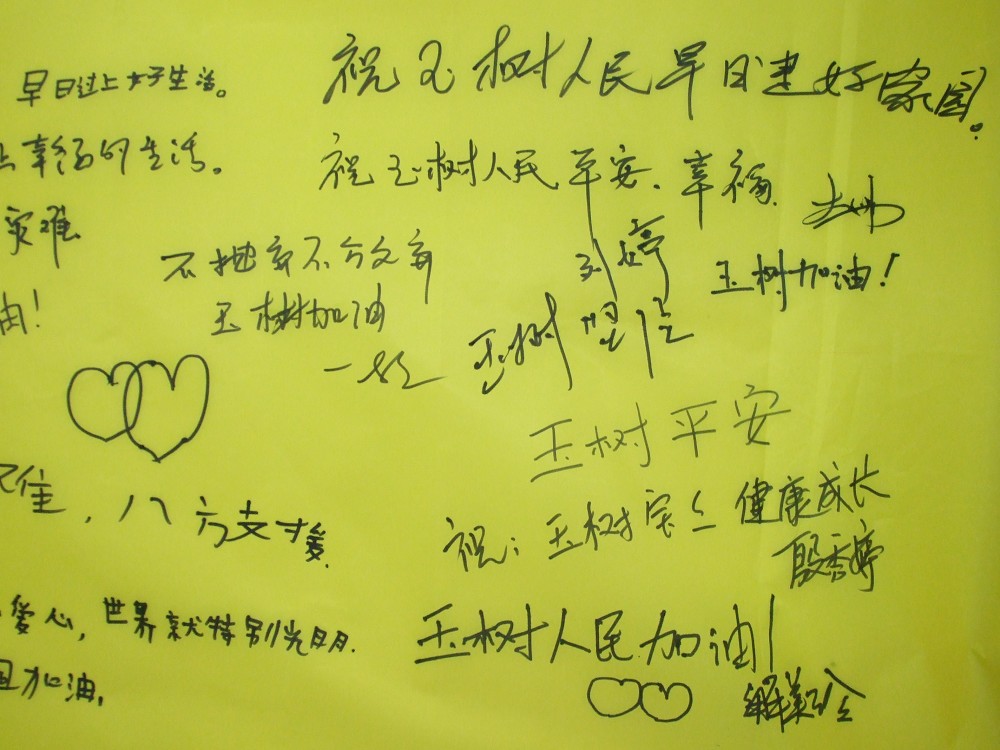 祝玉树人民早日建好家园。
早日过上好生活。
幸福的生活。
祝玉树人民平安、幸福
灾难
油!
不抛弃不放弃
玉树加油
刘婷
玉树加油!
玉树
玉树平安
住,八方支援
祝:玉树宝宝健康成长
殷香婷
爱心,世界就特别光明.
玉树人民加油!
加油,